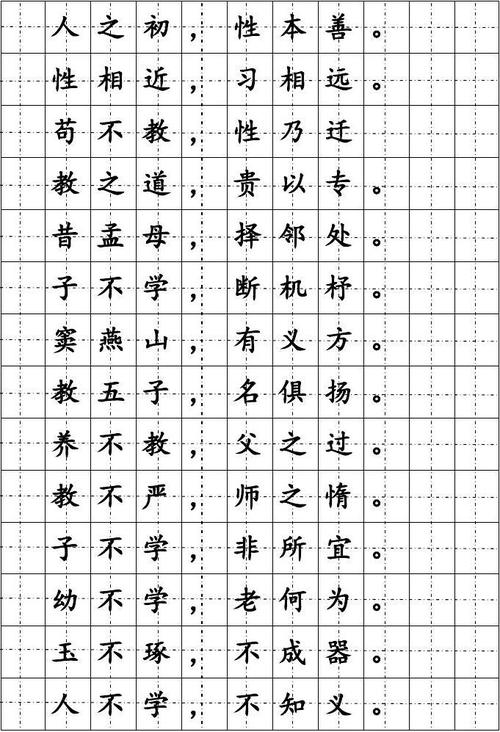 人之初，性本善。
性相近，习相远。
苟不教，性乃迁
教之道，贵以专。
昔孟母，择邻处。
子不学，断机杼。
窦燕山，有义方。
教五子，名俱扬。
养不教，父之过。
教不严，师之惰。
子不学，非所宜。
幼不学，老何为。
玉不琢，不成器。
人不学，不知义。